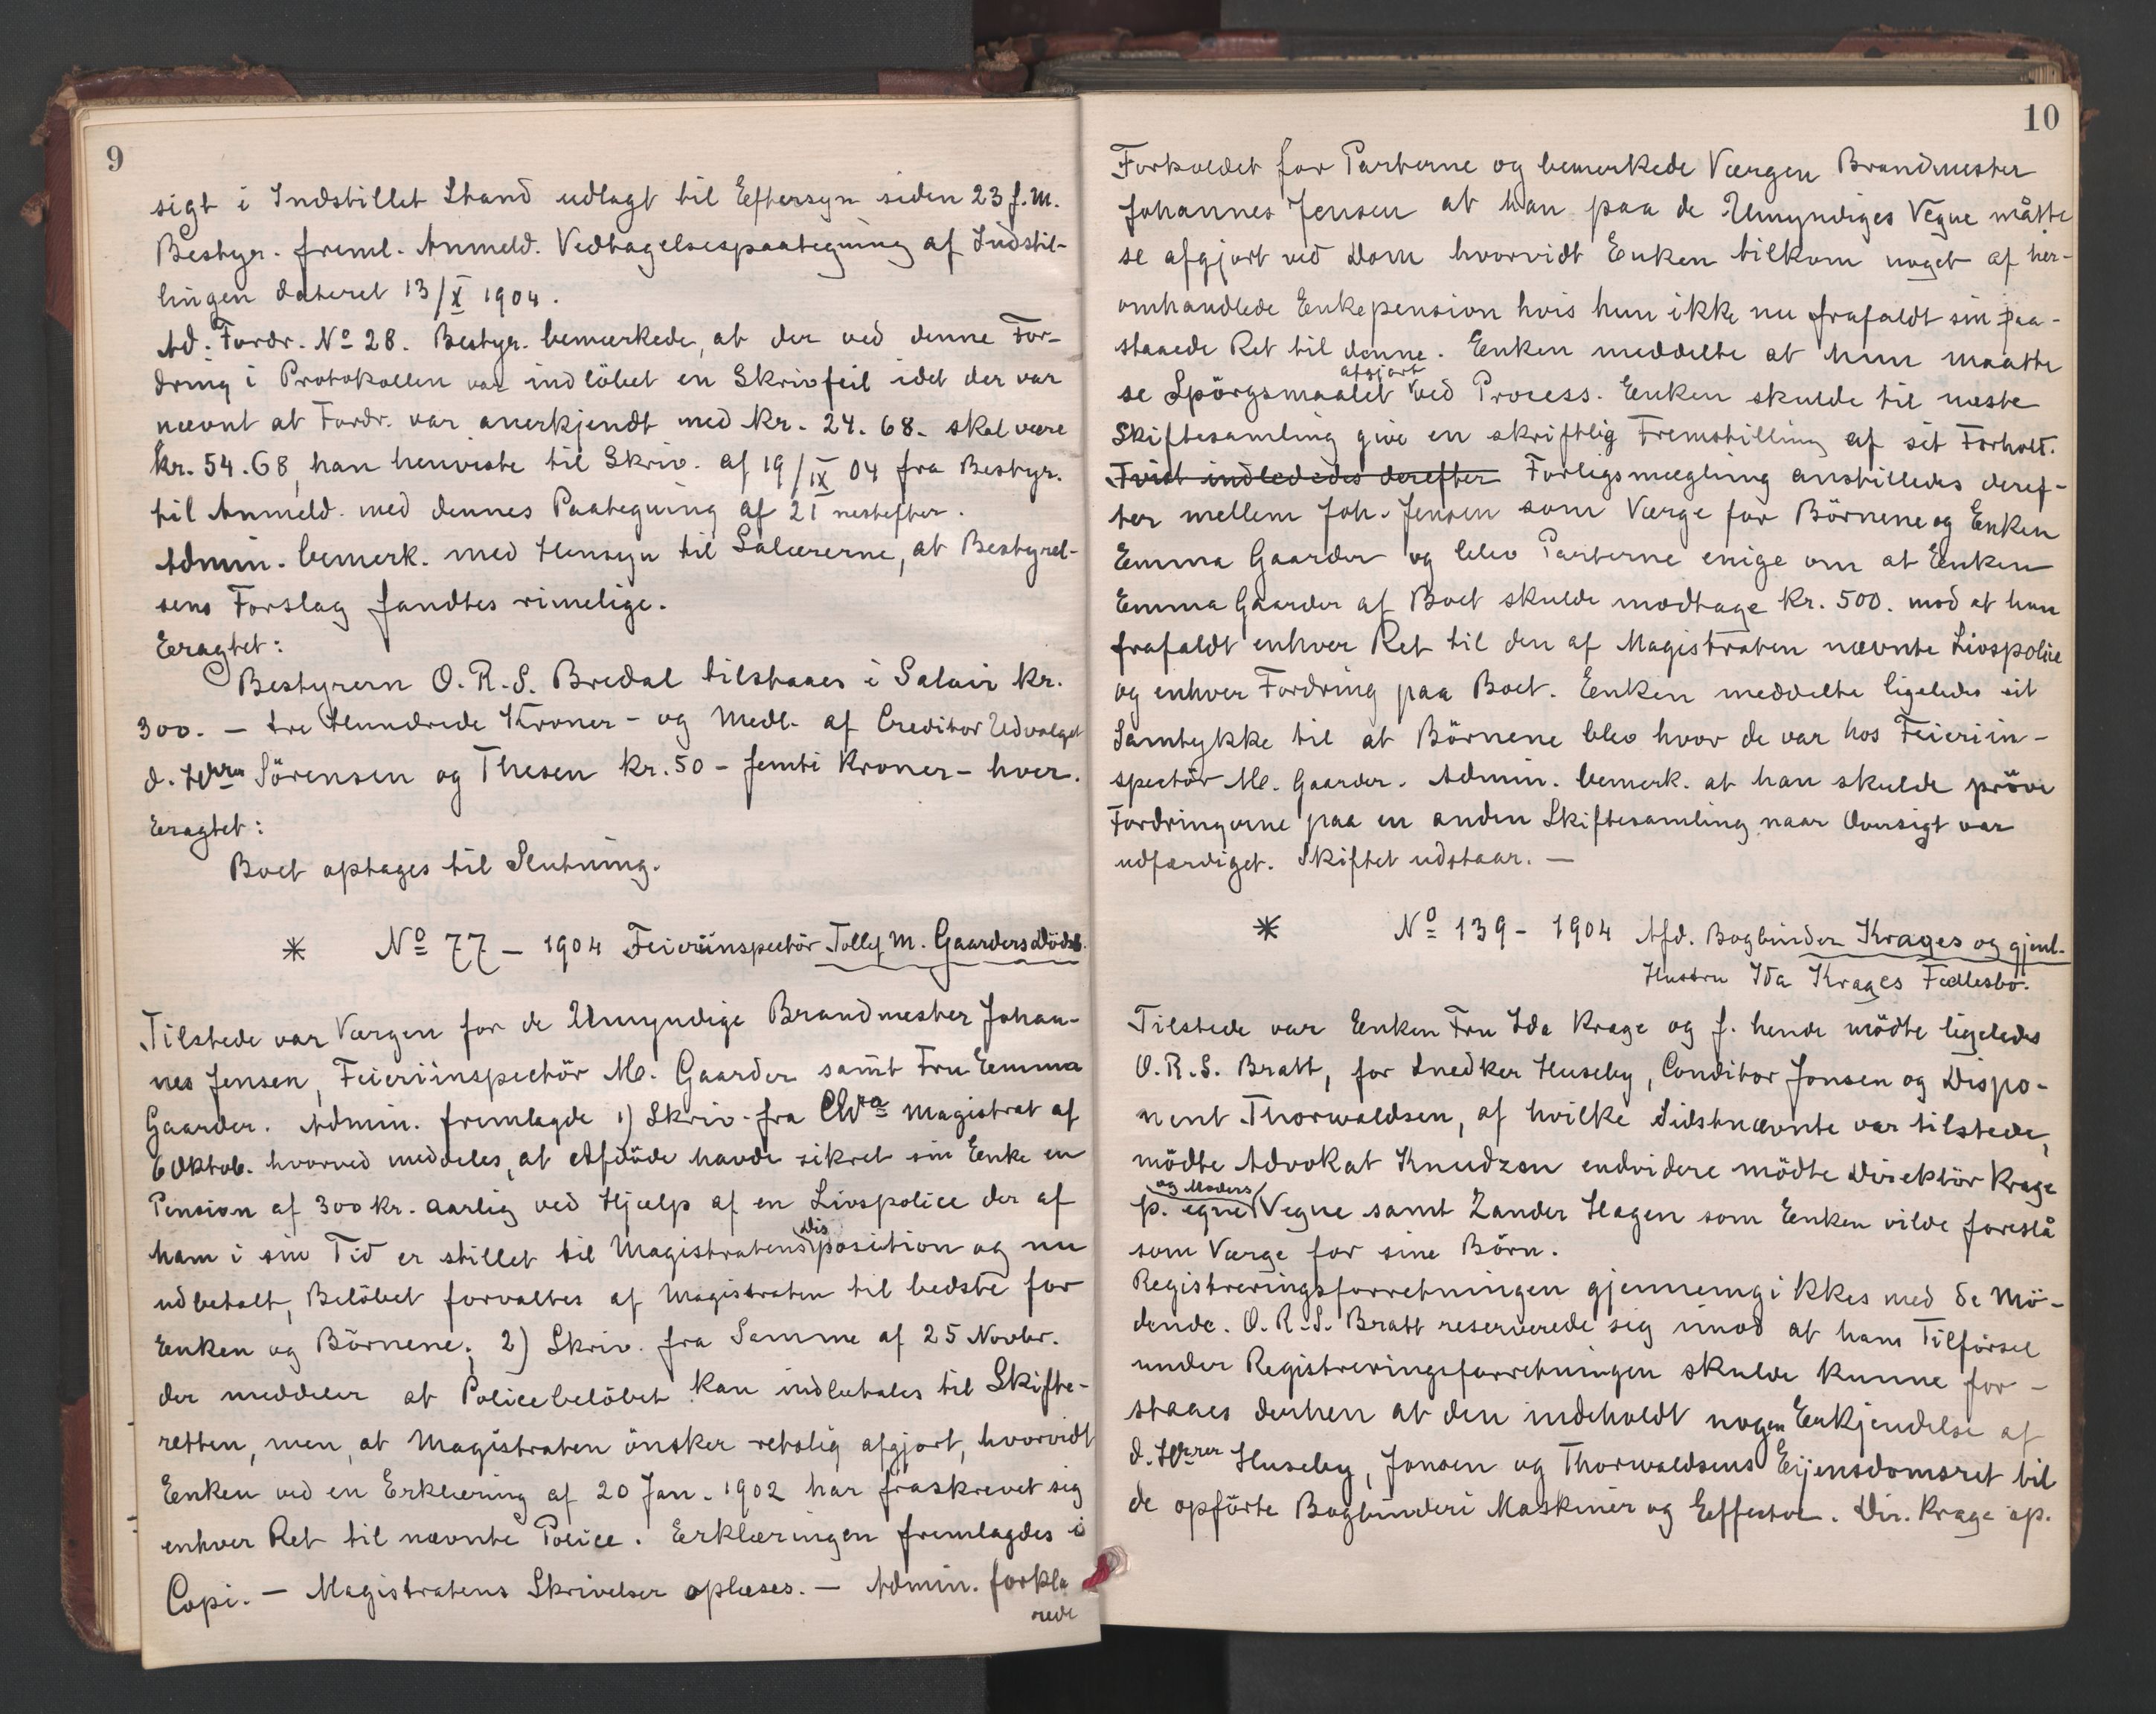 9
sigt i Indstillet Stand udlagt til Eftersyn siden 23 f. M.
Bestyr. freml. Anmeld. Vedtagelsespaategning af Indstil-
lingen dateret 13/X 1904.
Ad. Fordr. No 28. Bestyr. bemærkede, at der ved denne For-
dring i Protokollen var indløbet en Skrivfeil idet der var
nævnt at Fordr. var anerkjendt med Kr. 24.68. skal være
Kr. 54.68, han henviste til Skriv. af 19/IX 04 fra Bestyr.
til Anmeld. med dennes Paategning af 21 nestefter.
Admin. bemerk. med Hensyn til Salærerne, at Bestyrel-
sens Forslag fandtes rimelige.
Eragtet:
Bestyreren O.R.S. Bredal tilstaaes i Salair Kr.
300. – tre Hundrede Kroner – og Medl. af Creditor Udvalget
d. Hrrn Sörensen og Thesen Kr. 50 – femti Kroner – hver.
Eragtet:
Boet optages til Slutning.
* No 77 – 1904 Feieriinspectör Tolly M. Gaarders Dödsb.
Tilstede var Værgen for de Umyndige Brandmester Johan-
nes Jensen, Feieriinspectör M. Gaarder samt Fru Emma
Gaarder. Admin. fremlagde 1) Skriv. fra Chra Magistrat af
6 Oktob. hvorved meddeles, at Afdöde havde sikret sin Enke en
Pension af 300 kr. aarlig ved Hjælp af en Livspolice der af
ham i sin Tid er stillet til Magistratens Disposition og nu
udbetalt, Belöbet forvaltes af Magistraten til bedste for
Enken og Börnene; 2) Skriv. fra Samme af 25 Novbr.
der meddeler at Policebelöbet kan indbetales til Skifte-
retten, men, at Magistraten önsker retslig afgjort, hvorvidt
Enken ved en Erklæring af 20 Jan. 1902 har fraskrevet sig
enhver Ret til nævnte Police. Erklæringen fremlagdes i
Copi. – Magistratens Skrivelser oplæses. – Admin. forkla
rede
10
Forholdet for Parterne og bemerkede Værgen Brandmester
Johannes Jensen at han paa de Umyndiges Vegne måtte
se afgjort ved Dom hvorvidt Enken tilkom noget af her-
omhandlede Enkepension hvis hun ikke nu frafaldt sin paa-
staaede Ret til denne. Enken meddelte at hun maatte
se Spörgsmaalet afgjort ved Process. Enken skulde til næste
Skiftesamling give en skriftlig Fremstilling af sit Forhold.
Tvist indlededes derefter Forligsmægling anstilledes deref-
ter mellem Joh. Jensen som Værge for Börnene og Enken
Emma Gaarder og blev Parterne enige om at Enken
Emma Gaarder af Boet skulde modtage Kr. 500. mod at hun
frafaldt enhver Ret til den af Magistraten nævnte Livspolice
og enhver Fordring paa Boet. Enken meddelte ligeledes sit
Samtykke til at Börnene blev hvor de var hos Feieriin-
spectör M. Gaarder. Admin. bemerk. at han skulde pröve
Fordringerne paa en anden Skiftesamling naar Oversigt var
udfærdiget. Skiftet udstaar. –
* No 139 – 1904 Afd. Bogbinder Krages og gjenl.
Hustru Ida Krages Fællesbo.
Tilstede var Enken Fru Ida Krage og f. hende mödte ligeledes
O.R.S. Bratt, for Snedker Huseby, Conditor Jonsen og Dispo-
nent Thorwaldsen, af hvilke Sidstnævnte var tilstede,
mödte Advokat Knudzon endvidere mödte Direktör Krage
p. egne og Moders Vegne samt Zander Hagen som Enken vilde foreslå
som Værge for sine Börn.
Registreringsforretningen gjennemgikkes med de Mö-
dende. O.R.S. Bratt reserverede sig imod at hans Tilförsel
under Registreringsforretningen skulde kunne for-
staaes derhen at den indeholdt nogen Erkjendelse af
d. Hrrer Huseby, Jonsen og Thorwaldsens Eijendomsret til
de opförte Bogbinderi Maskiner og Effecter. Dir. Krage op.